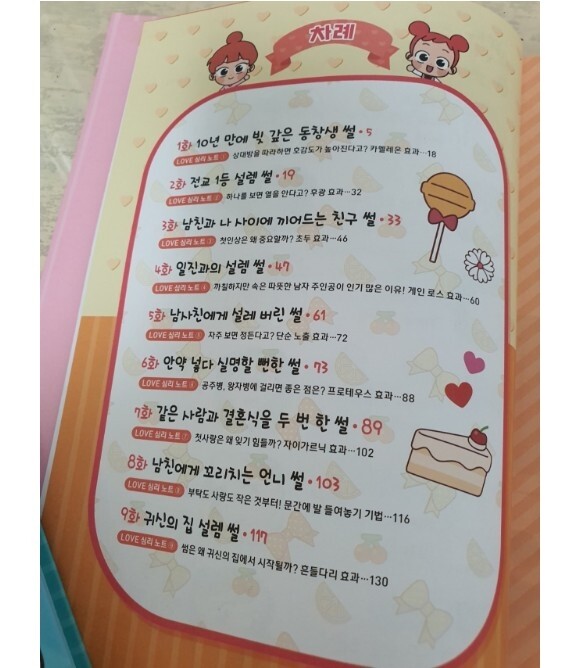 차례
1화 10년 만에 빚 갚은 동창생 썰 • 5
LOVE 심리 노트 1 상대방을 따라하면 호감도가 높아진다고? 카멜레온 효과…18
2화 전교 1등 설렘 썰 • 19
LOVE 심리 노트 2 하나를 보면 열을 안다고? 후광 효과…32
3화 남친과 나 사이에 끼어드는 친구 썰 • 33
LOVE 심리 노트 3 첫인상은 왜 중요할까? 초두 효과…46
4화 일진과의 설렘 썰 • 47
LOVE 심리 노트 4 까칠하지만 속은 따뜻한 남자 주인공이 인기 많은 이유! 게인 로스 효과…60
5화 남사친에게 설레 버린 썰 • 61
LOVE 심리 노트 5 자주 보면 정든다고? 단순 노출 효과…72
6화 안약 넣다 실명할 뻔한 썰 • 73
LOVE 심리 노트 6 공주병, 왕자병에 걸리면 좋은 점은? 프로테우스 효과…88
7화 같은 사람과 결혼식을 두 번 한 썰 • 89
LOVE 심리 노트 7 첫사랑은 왜 잊기 힘들까? 자이가르닉 효과…102
8화 남친에게 꼬리치는 언니 썰 • 103
LOVE 심리 노트 8 부탁도 사랑도 작은 것부터! 문간에 발 들여놓기 기법…116
9화 귀신의 집 설렘 썰 • 117
LOVE 심리 노트 9 썸은 왜 귀신의 집에서 시작될까? 흔들다리 효과…130